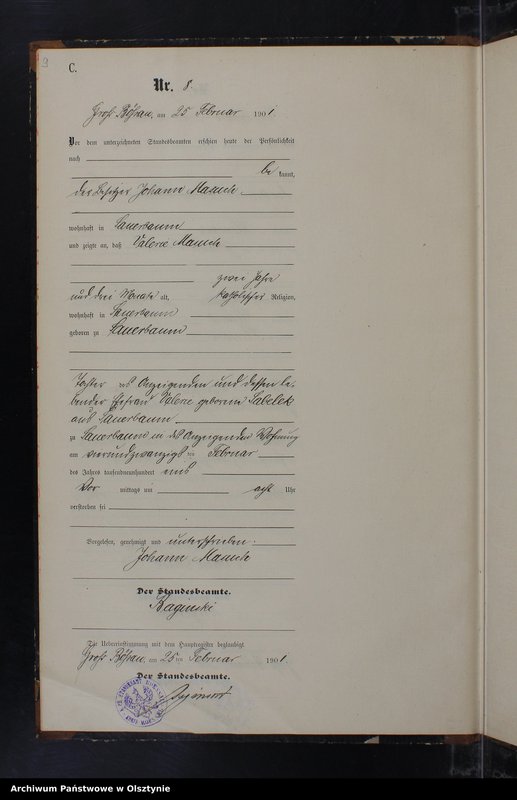 9
C.
Nr. 8.
Groß Bößau, am 25 Februar 1901
Vor dem unterzeichneten Standesbeamten erschien heute der Persönlichkeit
nach
be kannt,
der Besitzer Johann
wohnhaft in Sauerbaum
und zeigte an, daß Valerie
zwei Jahre
und drei Monate alt, katholischer Religion,
wohnhaft in Sauerbaum
geboren zu Sauerbaum
Tochter des Anzeigenden und dessen le-
bender Ehefrau Valerie geborene
aus Sauerbaum
zu Sauerbaum in des Anzeigenden Wohnung
am vierundzwanzigsten Februar
des Jahres tausendneunhundert eins
Vor mittags um acht Uhr
verstorben sei
Vorgelesen, genehmigt und unterschrieben.
Johann
Der Standesbeamte.
Baginski
Die Uebereinstimmung mit dem Hauptregister beglaubigt
Groß Bößau, am 25 ten Februar 1901
Der Standesbeamte.
Archiwum Państwowe w Olsztynie